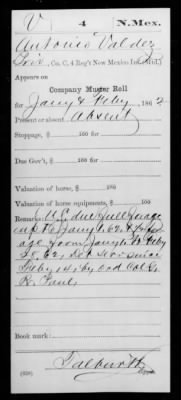 V | 4 | N.Mex.
Antonio Valdez
Co. C, 4 Reg't New Mexico Inf. (Mil.)
Appears on
Company Muster Roll
for Jany & Feby, 1862
Present or absent Absent
Stoppage, $ 100 for
Due Gov't, $ 100 for
Valuation of horse, $ 100
Valuation of horse equipments, $ 100
Remarks: U.S. due full
Jany 1, 62, &
age from Jany 1, to Feby
28, 62, service since
Feby by ord Col. G.
R. Paul,
Book mark:
Talbutth
(858) Copyist.